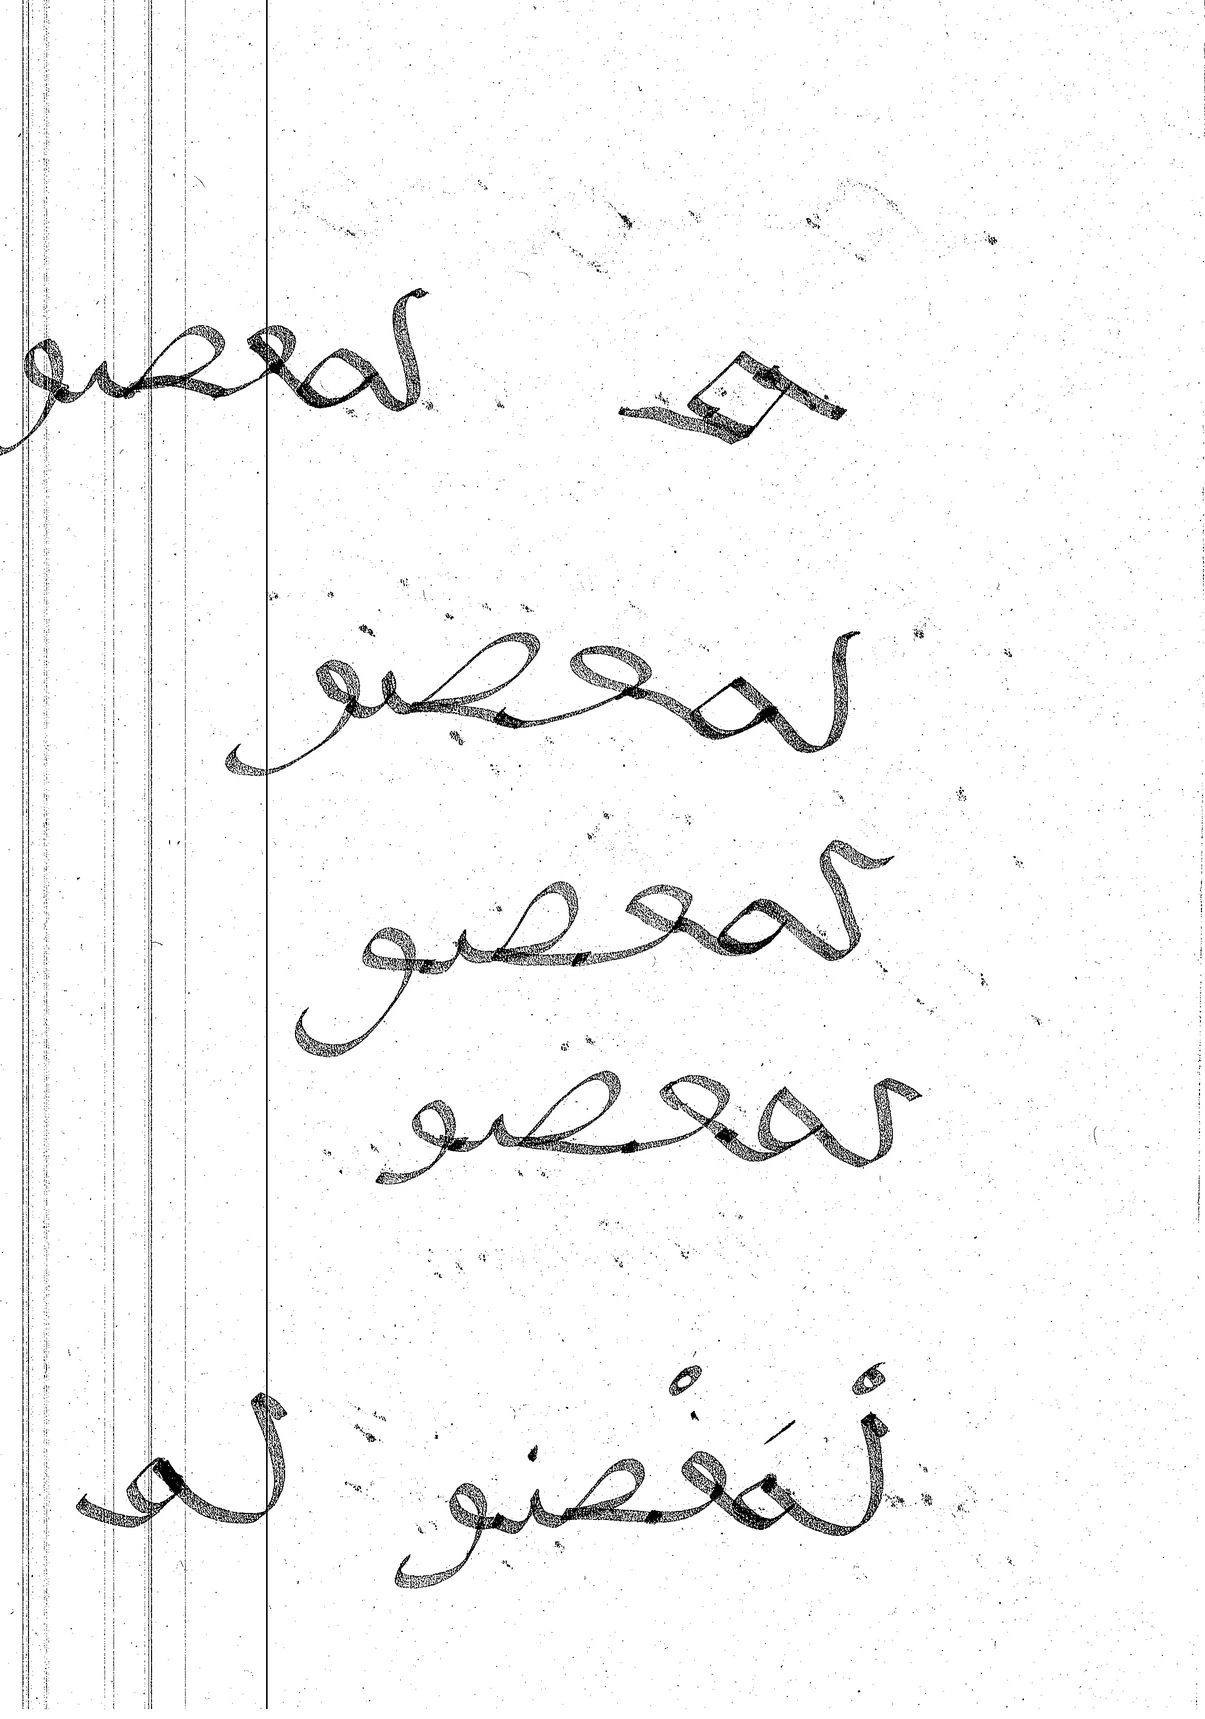 مـ لمعصو
لمعصو
لمعصو
لمعصو
لْمَغْضو لمـ